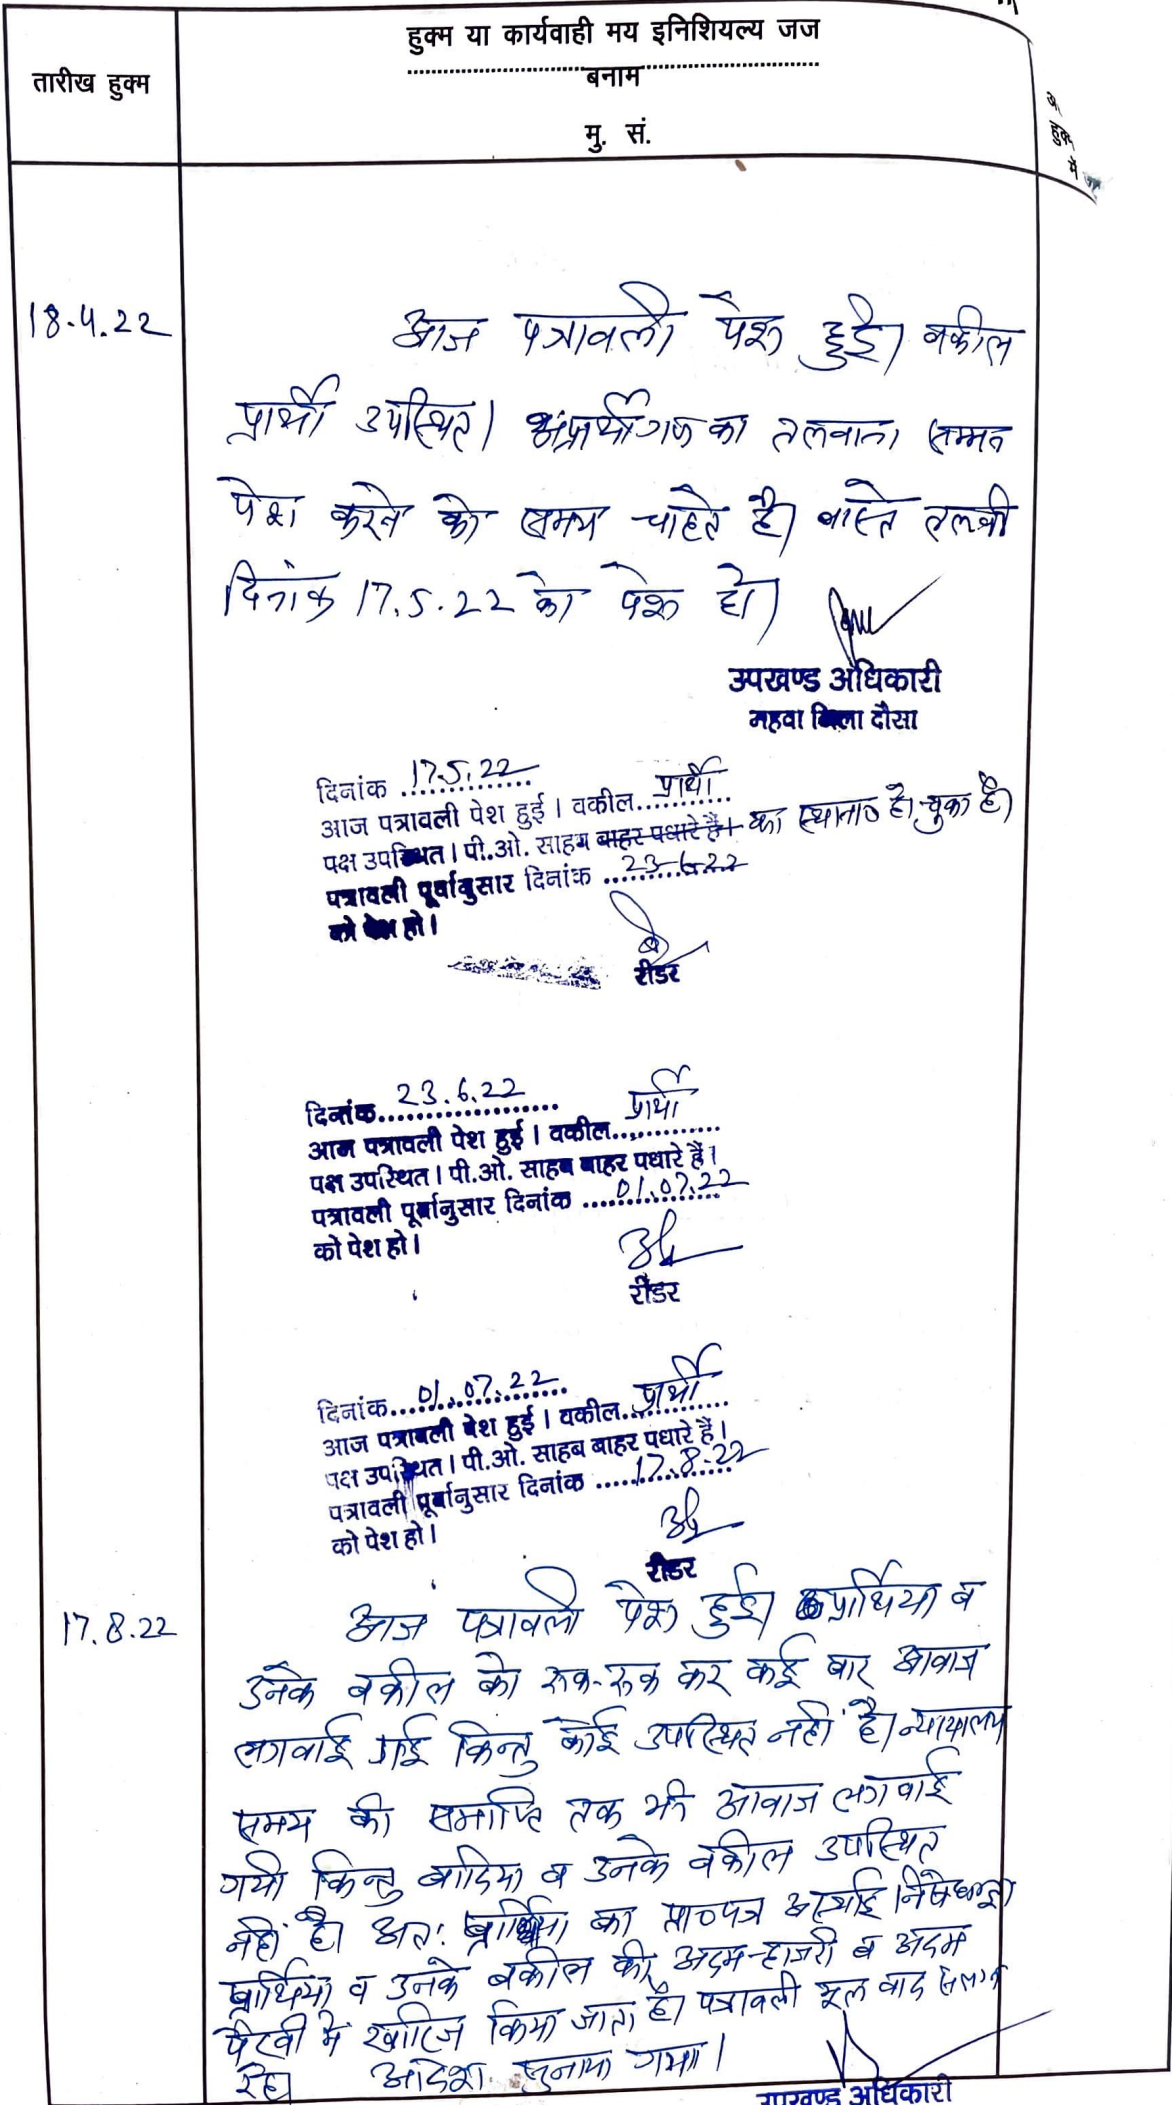 तारीख हुक्म
हुक्म या कार्यवाही मय इनिशियल्य जज
बनाम
मु. सं.
हुक्म
में
18.4.22
आज पत्रावली पेश हुई। वकील
प्रार्थी उपस्थित। अप्रार्थीगण का तलवाना सम्मन
पेश करने को समय चाहते है। वास्ते तलबी
दिनांक 17.5.22 को पेश हो।
उपखण्ड अधिकारी
महवा जिला दौसा
दिनांक 17.5.22
आज पत्रावली पेश हुई। वकील प्रार्थी
पक्ष उपस्थित। पी.ओ. साहब बाहर पधारे हैं। का स्थाना० हो चुका है।
पत्रावली पूर्वानुसार दिनांक 23-6-22
को पेश हो।
रीडर
दिनांक 23.6.22
आज पत्रावली पेश हुई। वकील प्रार्थी
पक्ष उपस्थित। पी.ओ. साहब बाहर पधारे हैं।
पत्रावली पूर्वानुसार दिनांक 01.07.22
को पेश हो।
रीडर
दिनांक 01.07.22
आज पत्रावली पेश हुई। वकील प्रार्थी
पक्ष उपस्थित। पी.ओ. साहब बाहर पधारे हैं।
पत्रावली पूर्वानुसार दिनांक 17.8.22
को पेश हो।
रीडर
17.8.22
आज पत्रावली पेश हुई। प्रार्थिया व
उनके वकील को रुक-रुक कर कई बार आवाज
लगवाई गई किन्तु कोई उपस्थित नहीं है। न्यायालय
समय की समाप्ति तक भी आवाज लगवाई
गयी किन्तु वादिया व उनके वकील उपस्थित
नहीं है। अत: प्रार्थिया का प्रा०पत्र अस्थाई निषेधाज्ञा
प्रार्थिया व उनके वकील की अदम-हाजरी व अदम
पैरवी में खारिज किया जाता है। पत्रावली मूल वाद संलग्न
रहे। आदेश सुनाया गया।
उपखण्ड अधिकारी